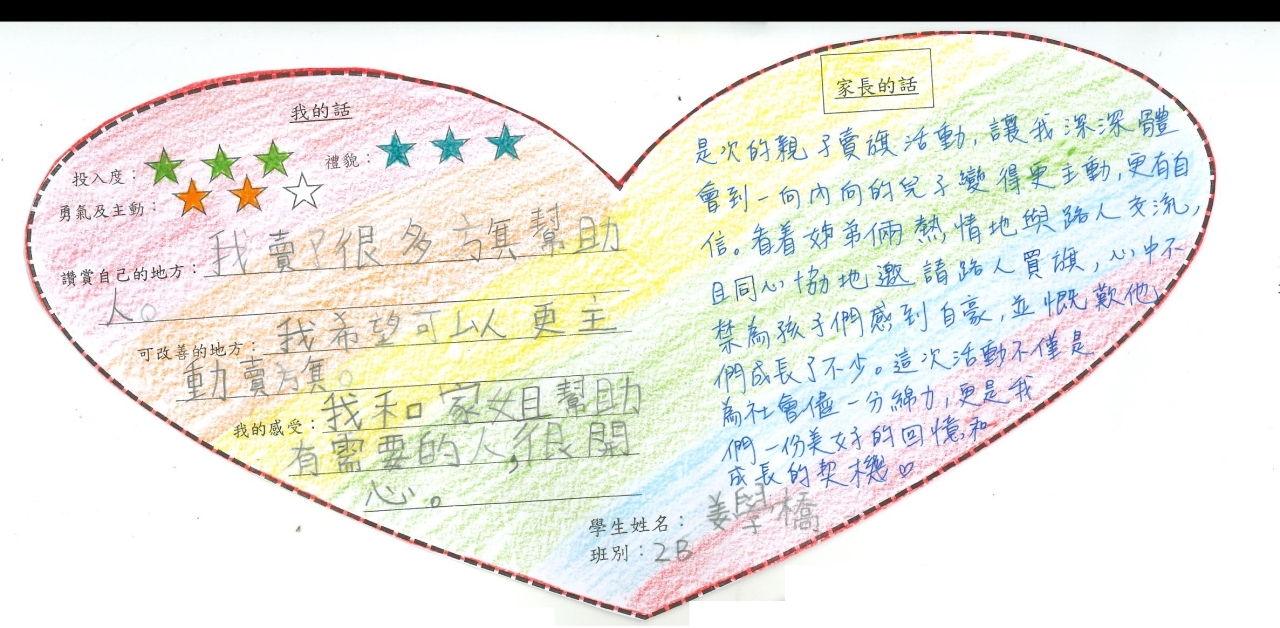 我的話
投入度：
禮貌：
勇氣及主動：
讚賞自己的地方：我賣了很多旗幫助
人。
可改善的地方：我希望可以更主
動賣旗。
我的感受：我和家姐幫助
有需要的人，很開
心。
家長的話
是次的親子賣旗活動，讓我深深體
會到一向內向的兒子變得更主動，更有自
信。看着姊弟倆熱情地與路人交流，
且同心協地邀請路人買旗，心中不
禁為孩子們感到自豪，並慨歎他
們成長了不少。這次活動不僅是
為社會儘一分綿力，更是我
們一份美好的回憶和
成長的契機♡
學生姓名：姜學橋
班別：2B